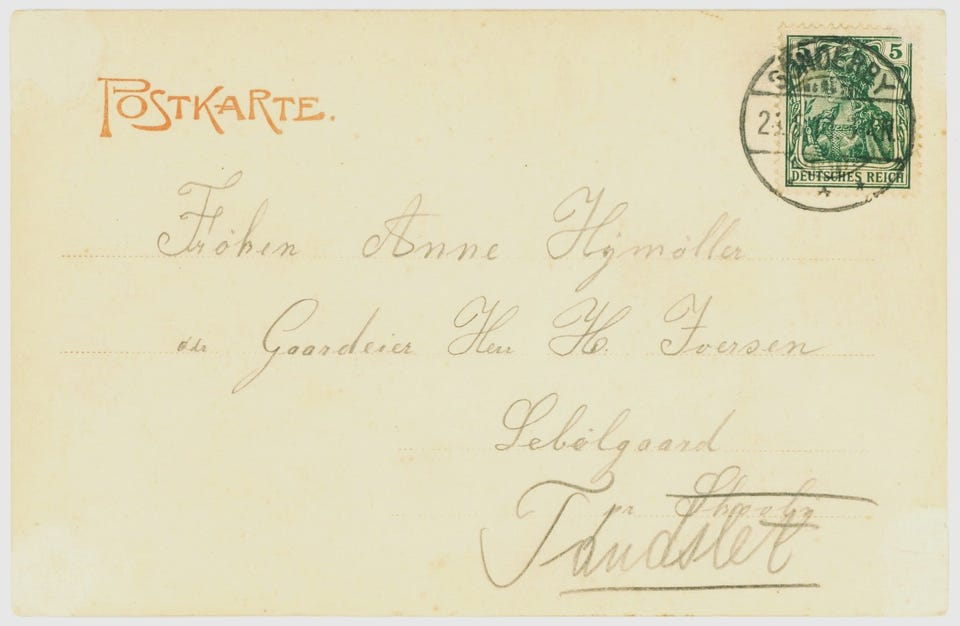 POSTKARTE.
5 5
SONDERBY
DEUTSCHES REICH
Frôken Anne Hÿmøller
adr Gaardeier Herr H. Iversen
Lebølgaard
pr Skovby
Tandslet